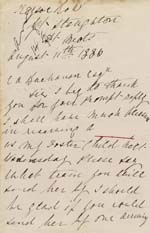 Nr Stoughton
August 11th 1886
J A Buchanan Esqr
Sir I beg to thank
you for your prompt reply
I shall have much pleasure
in receiving a
as my Foster Child next
Wednesday Please say
what train you will
send her by I should
be glad if you would
send her by one arriving